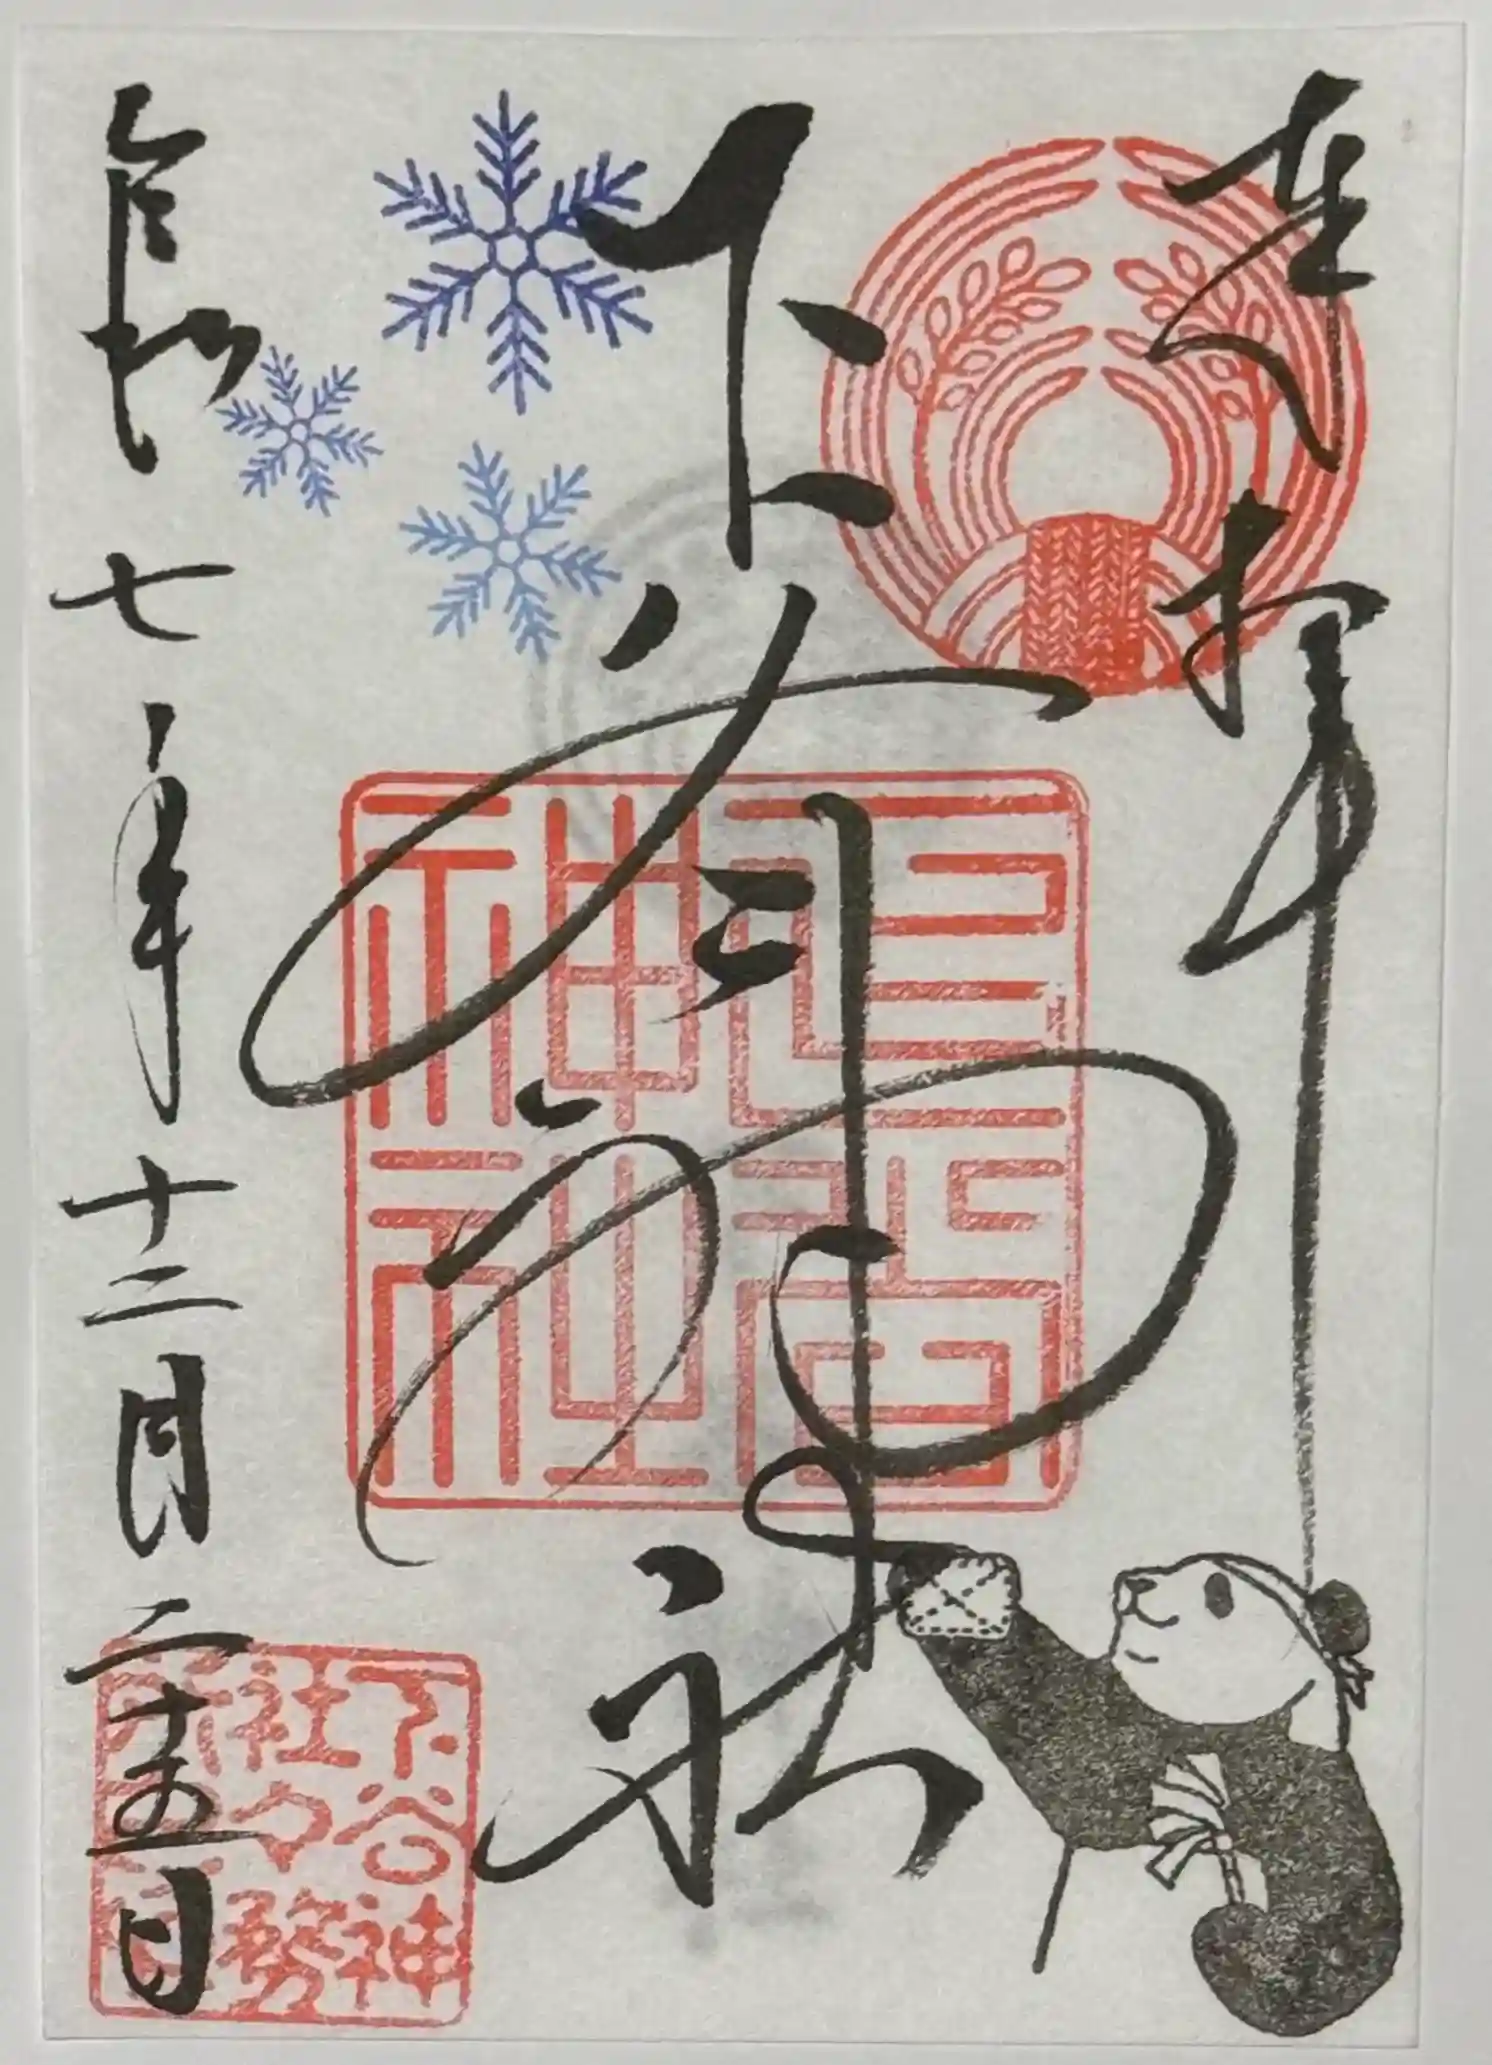 奉拝
下谷神社
令和七年十二月二十五日
神社
下谷神
社々務
所